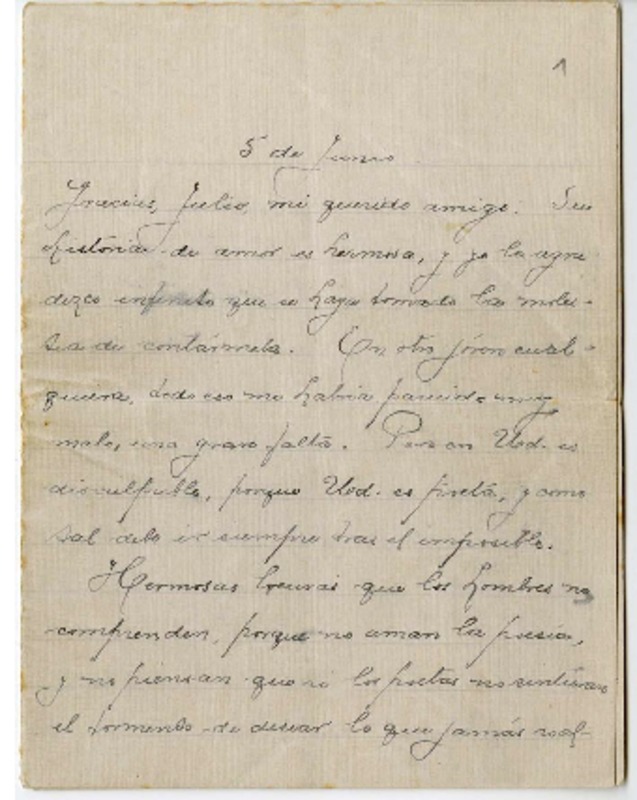 1
5 de Junio
Gracias, Julio, mi querido amigo. Su
história de amor es hermosa, y yo la agra
dezco infinito que se haya tomado la moles-
tia de contármela. En otro jóven cual-
quiera, todo eso me habria parecido muy
malo, una grave falta. Pero en Usd. es
disculpable, porque Usd. es poeta, y como
tal debe ir siempre tras el imposible.
Hermosas locuras que los hombres no
comprenden, porque no aman la poesía,
y no piensan que si los poetas no sintieran
el tormento de desear lo que jamás